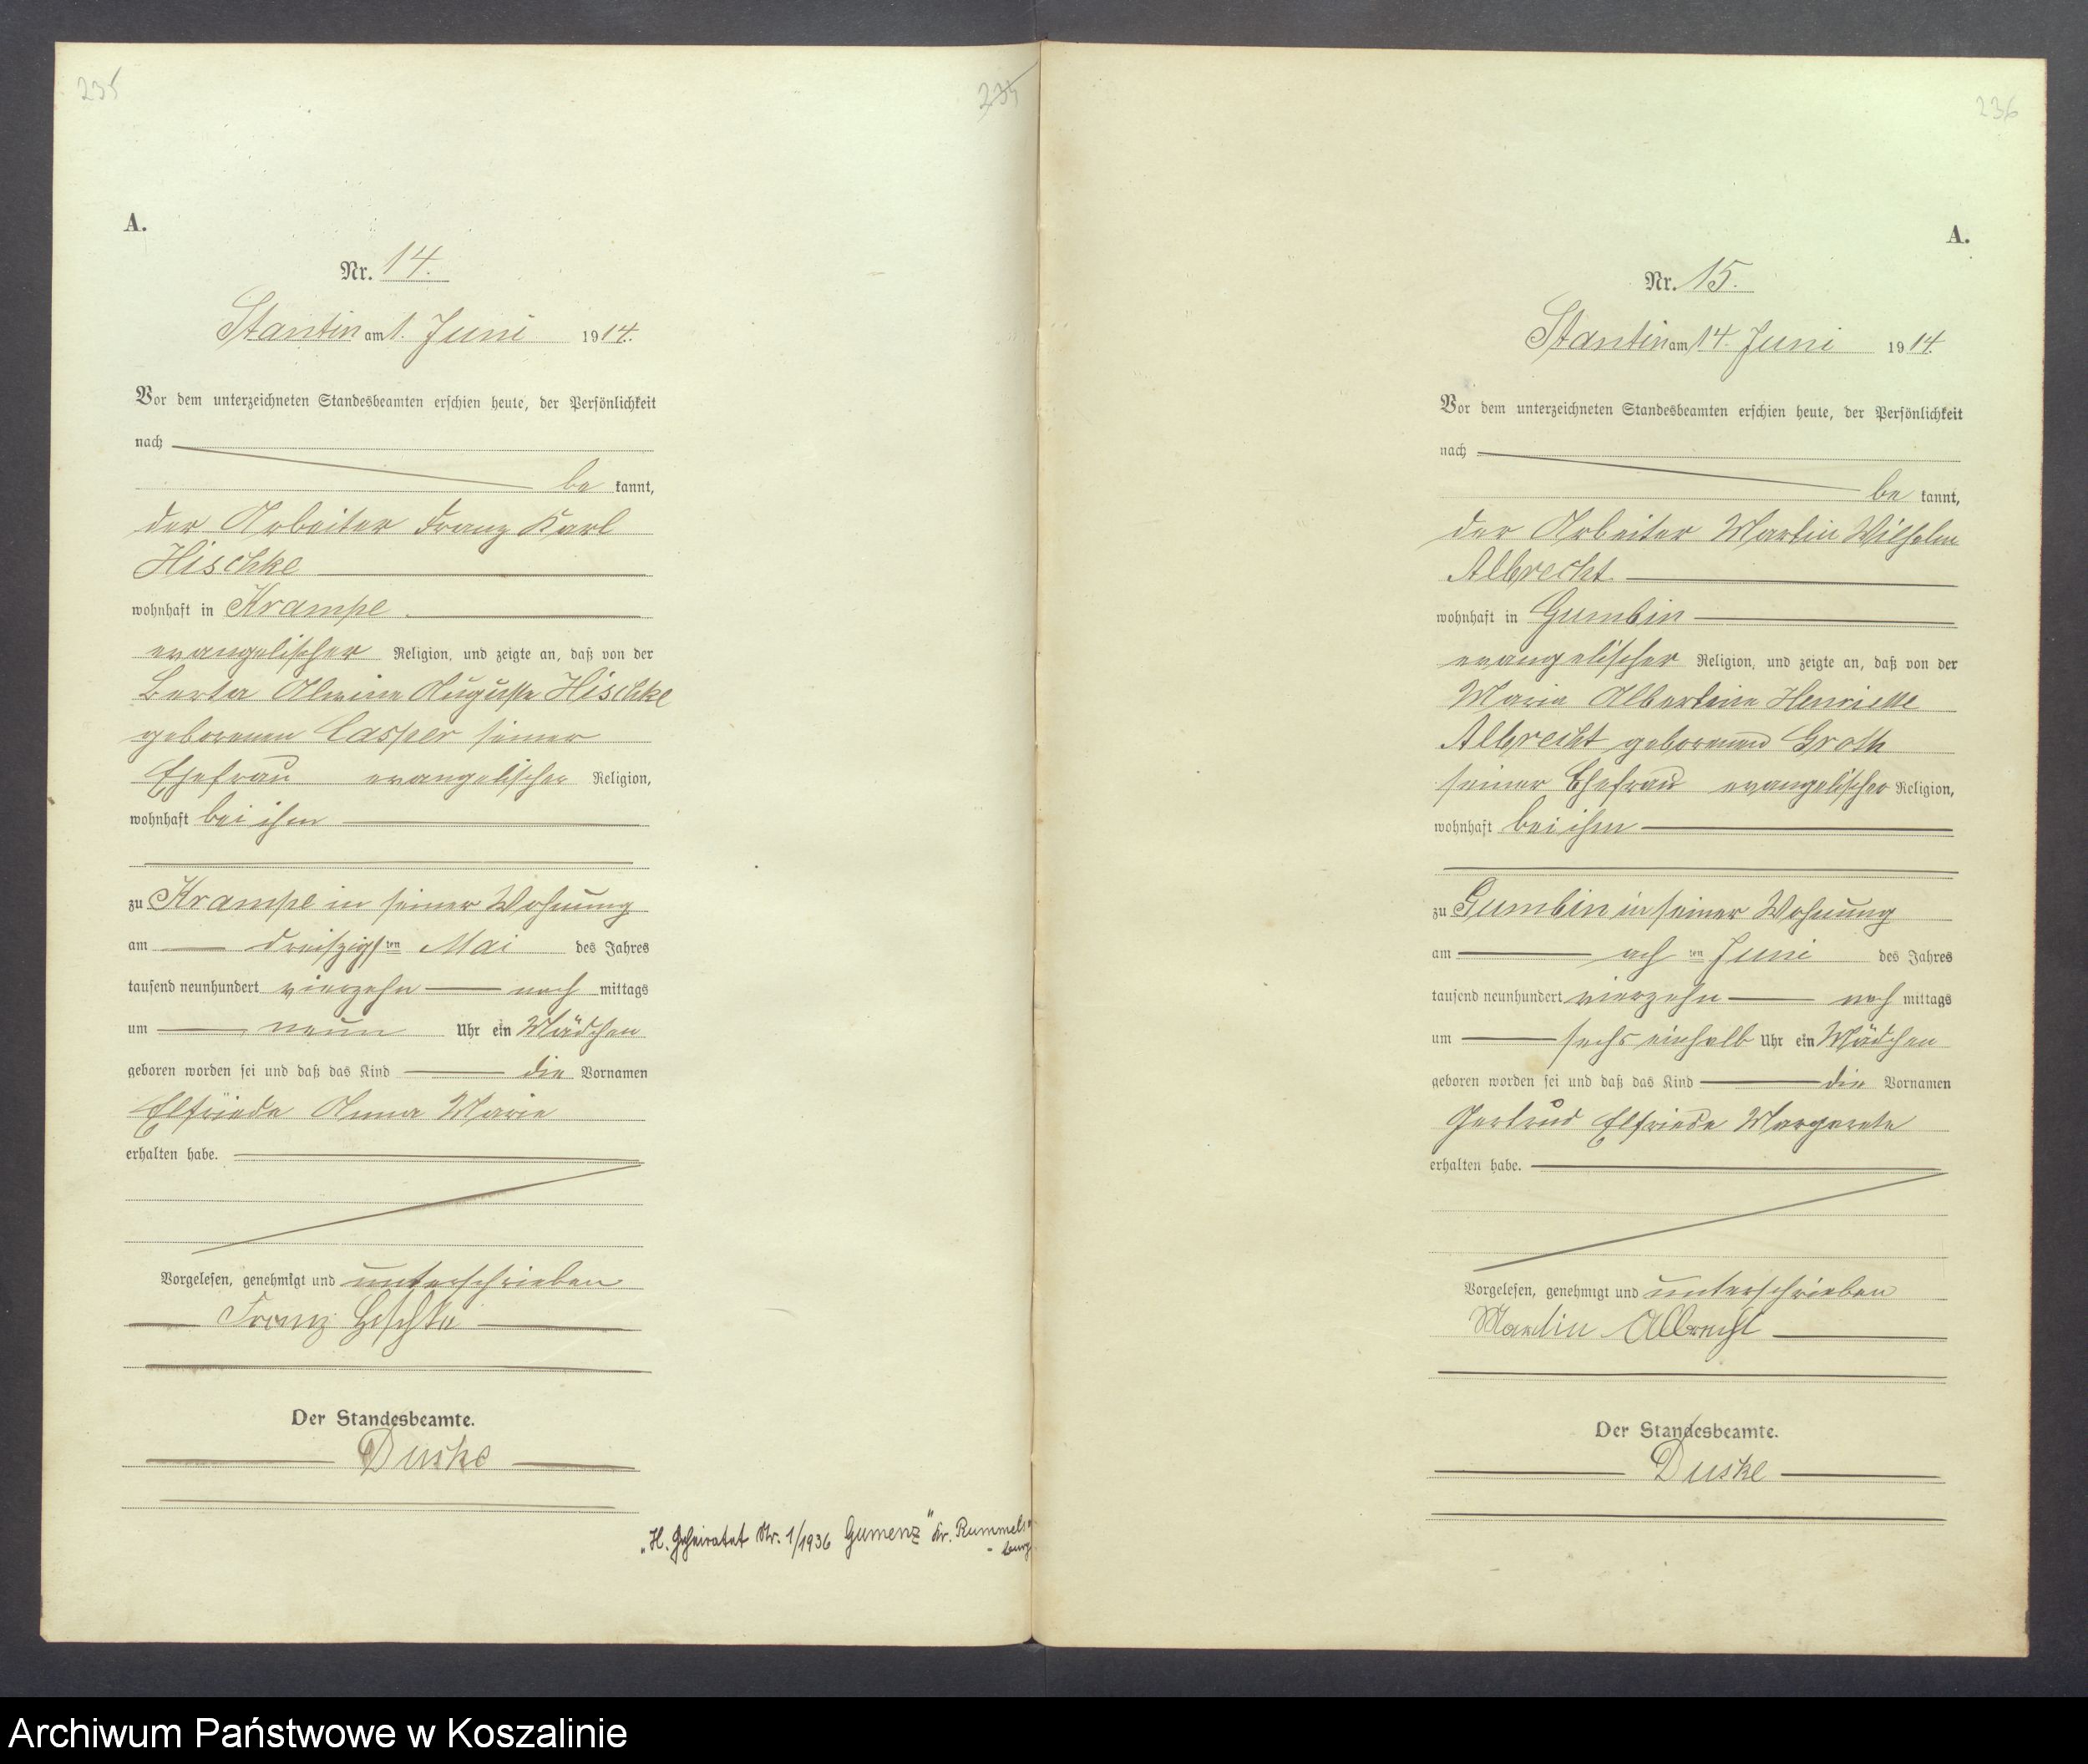 235
A.
Nr. 14.
Stantin am 1. Juni 1914.
Vor dem unterzeichneten Standesbeamten erschien heute, der Persönlichkeit
nach
be kannt,
der Arbeiter Franz Karl
Hischke
wohnhaft in Krampe.
evangelischer Religion, und zeigte an, daß von der
Berta Alwine Auguste Hischke
geborenen Casper seiner
Ehefrau evangelischer Religion,
wohnhaft bei ihm
zu Krampe in seiner Wohnung
am dreißigsten Mai des Jahres
tausend neunhundert vierzehn nach mittags
um neun Uhr ein Mädchen
geboren worden sei und daß das Kind die Vornamen
Elfriede Anna Marie
erhalten habe.
Vorgelesen, genehmigt und unterschrieben
Franz
Der Standesbeamte.
Duske
„H. Geheiratet Nr. 1/1936 Gumenz" Kr. Rummels-
burg
235
236
A.
Nr. 15.
Stantin am 14. Juni 1914.
Vor dem unterzeichneten Standesbeamten erschien heute, der Persönlichkeit
nach
be kannt,
der Arbeiter Martin Wilhelm
Albrecht.
wohnhaft in Gumbin
evangelischer Religion, und zeigte an, daß von der
Marie Albertine Henriette
Albrecht geborenen Groth
seiner Ehefrau evangelischer Religion,
wohnhaft bei ihm
zu Gumbin in seiner Wohnung
am achten Juni des Jahres
tausend neunhundert vierzehn nach mittags
um sechs einhalb Uhr ein Mädchen
geboren worden sei und daß das Kind die Vornamen
Gertrud Elfriede Margarete
erhalten habe.
Vorgelesen, genehmigt und unterschrieben
Martin Albrecht
Der Standesbeamte.
Duske
Archiwum Państwowe w Koszalinie